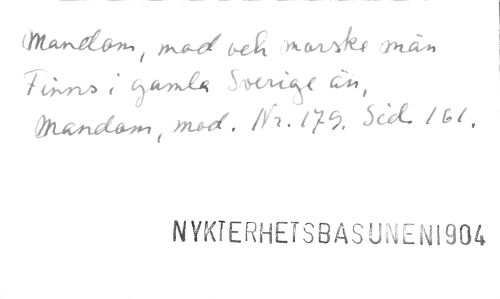 Mandom, mod och morske män
Finns i gamla Sverige än,
Mandom, mod. Nr. 179. Sid. 161.
NYKTERHETSBASUNEN1904